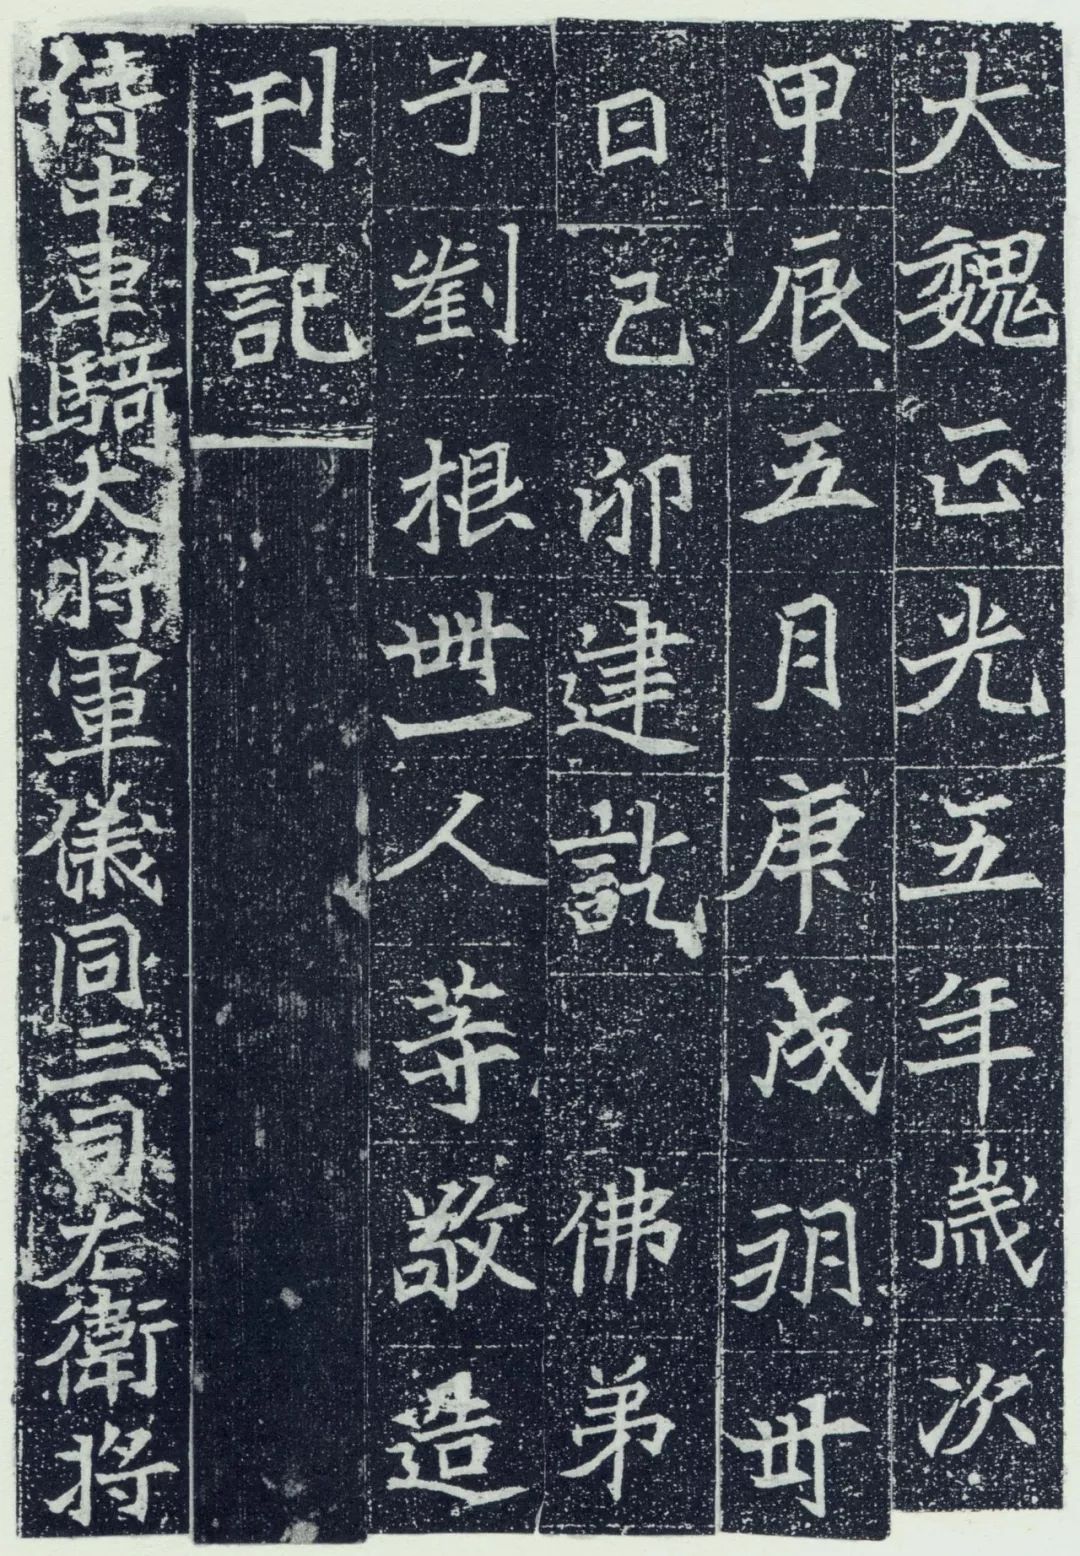 大魏正光五年歲次
甲辰五月庚戌朔卅
日己卯建訖 佛弟
子劉根卌一人等敬造
刊記
侍中車騎大將軍儀同三司左衛將